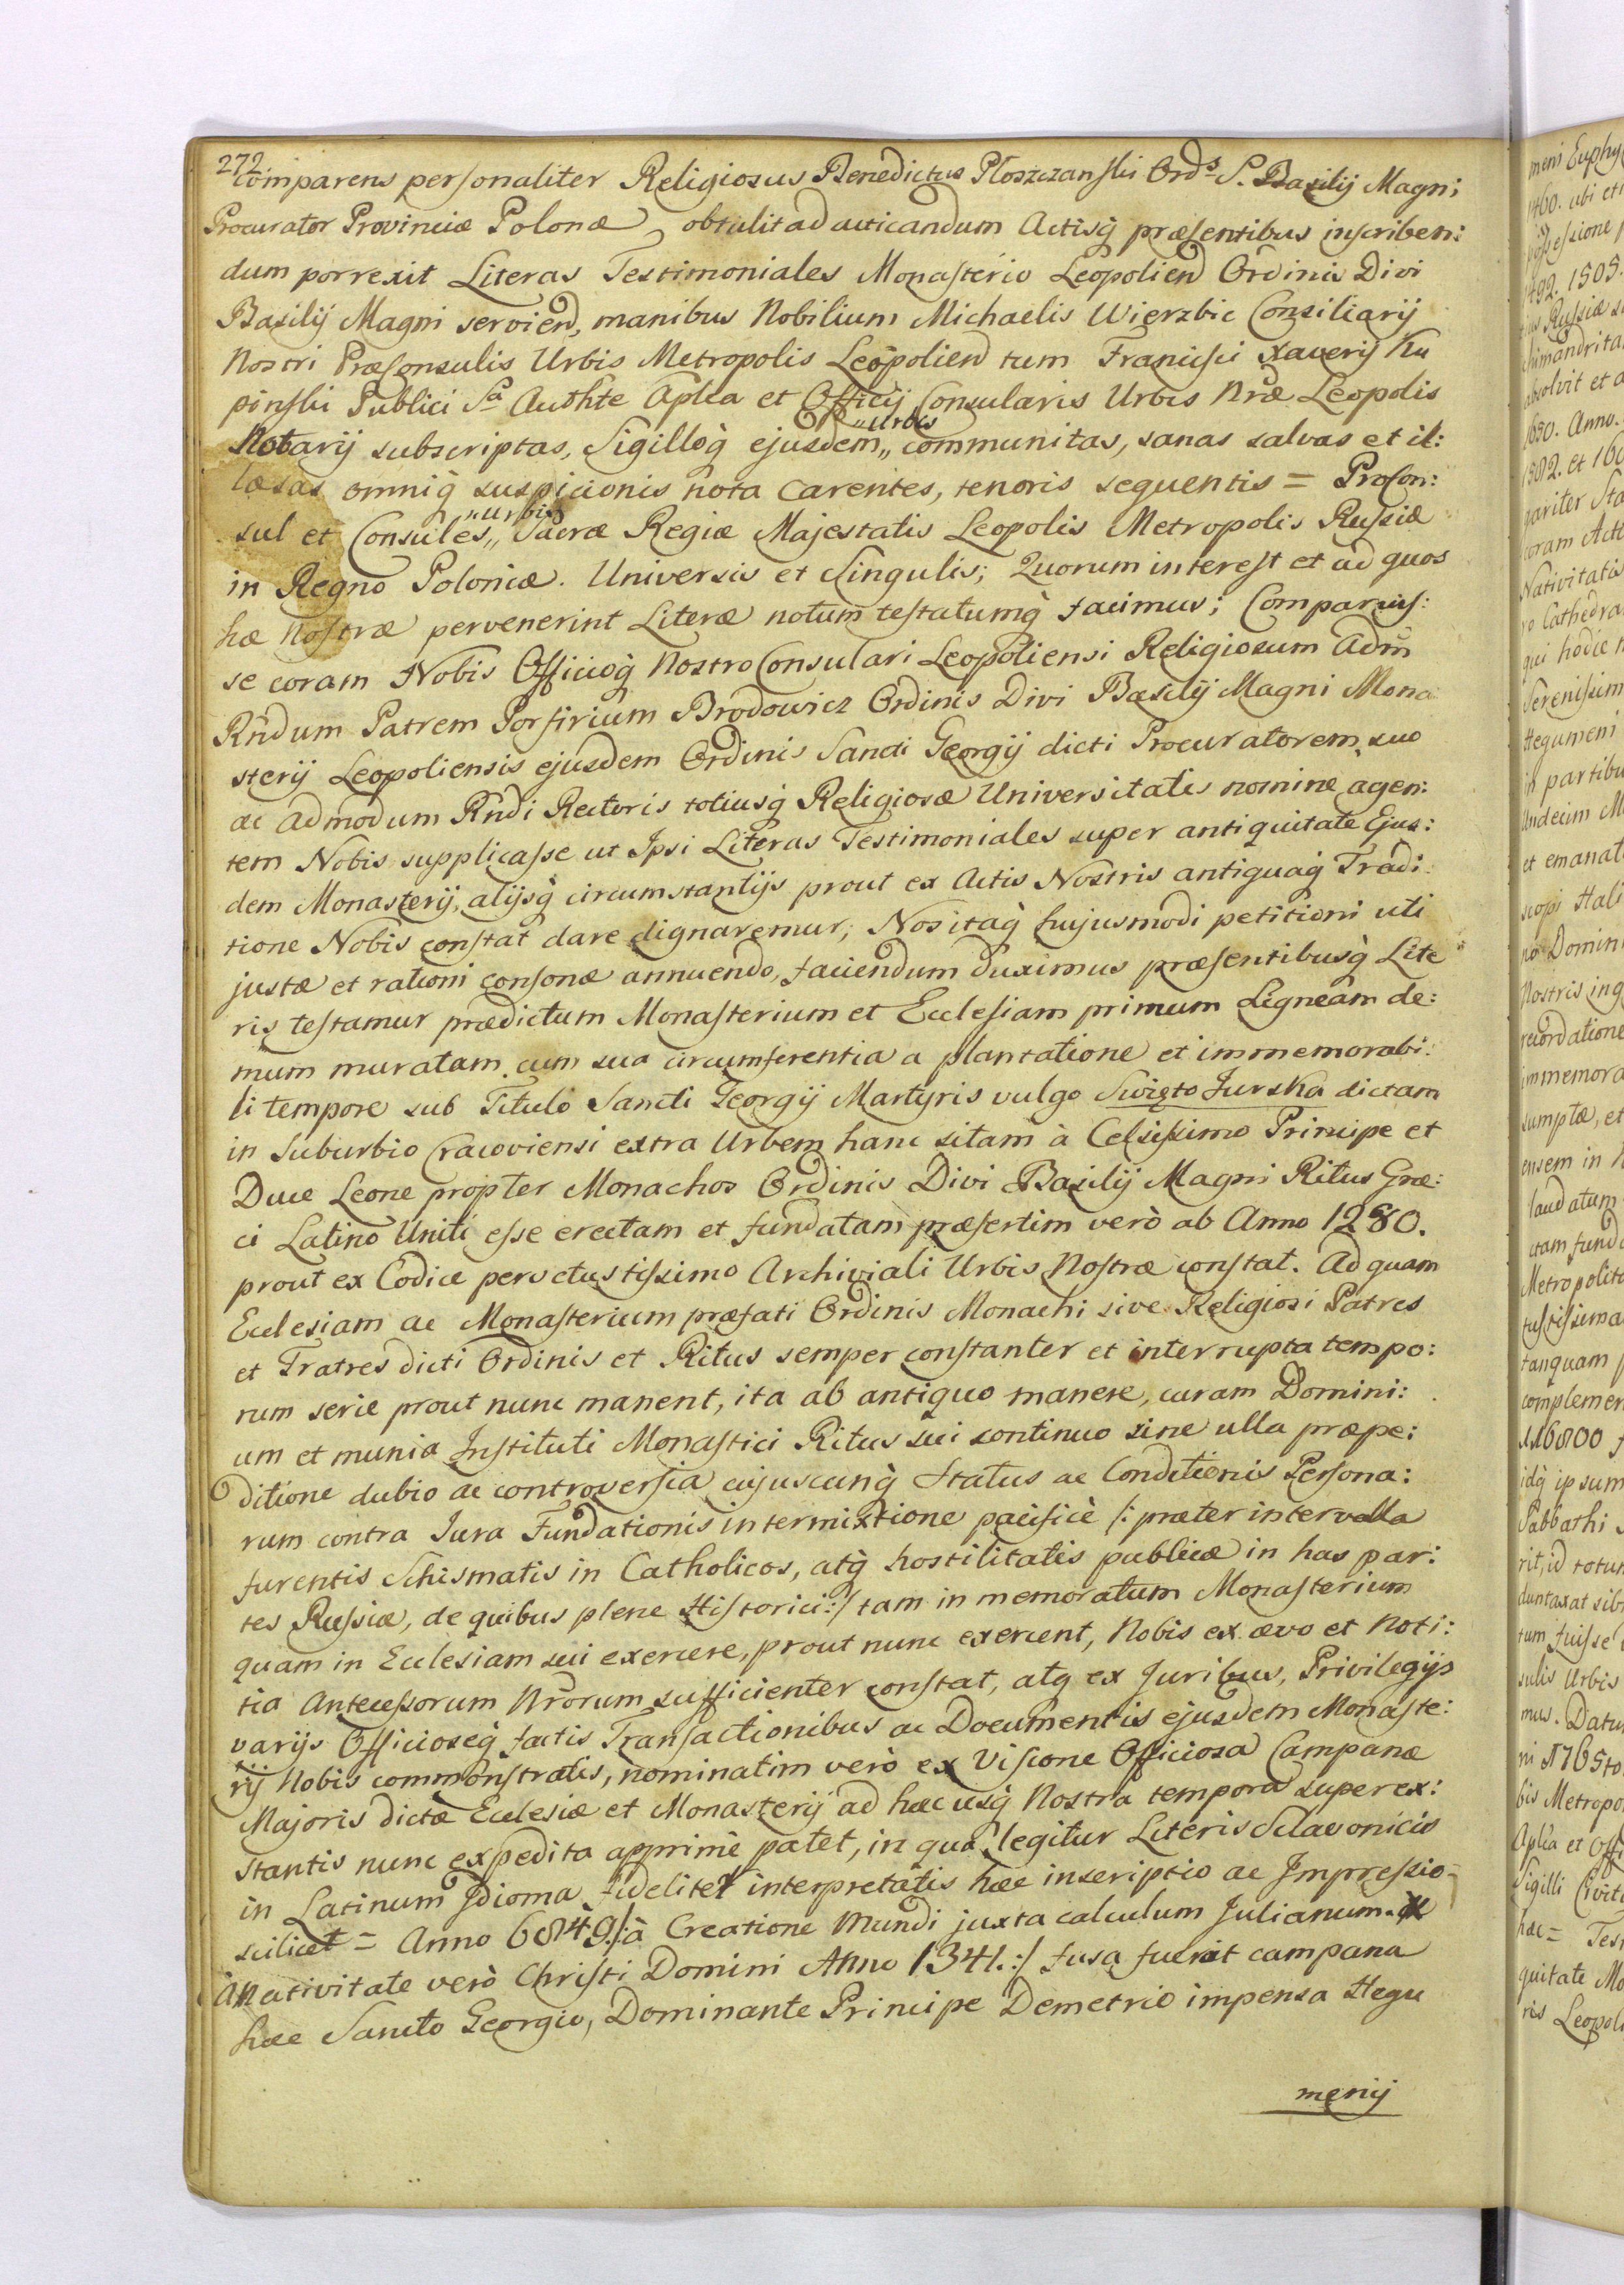 272
comparens personaliter Religiosus Benedictus Płoszczanski Ord̄s S. Basilij Magni;
Procurator Provinciæ Polonæ obtulit ad acticandum Actisq̀ præsentibus inscriben:
dum porrexit Literas Testimoniales Monasterio Leopolien̄ Ordinis Divi
Basilij Magni servien̄, manibus Nobilium Michaelis Wierzbic Consiliarij
Nostri Præconsulis Urbis Metropolis Leopolien̄ tum Francisci Xaverij Ku
pinski Publici Sa Authte Aplca et Officij Consularis Urbis Nræ Leopolis
Notarij subscriptas, Sigilloq̀ ejusdem „Urbis„ communitas, sanas salvas et il:
læsas omniq̀ suspicionis nota carentes, tenoris sequentis = Procon:
sul et Consules „Urbis„ Sacræ Regiæ Majestatis Leopolis Metropolis Russiæ
in Regno Poloniæ. Universis et Singulis; Quorum interest et ad quos
hæ Nostræ pervenerint Literæ notum testatumq̀ facimus; Comparuis:
se coram Nobis Officioq̀ Nostro Consulari Leopoliensi Religiosum Adm̄
Rńdum Patrem Porfirium Brodowicz Ordinis Divi Basilij Magni Mona
sterij Leopoliensis ejusdem Ordinis Sancti Georgij dicti Procuratorem, suo
ac admodum Rńdi Rectoris totiusq̀ Religiosæ Universitatis nomine agen:
tem Nobis supplicasse ut Ipsi Literas Testimoniales super antiquitate Ejus:
dem Monasterij, alijsq̀ circumstantijs prout ex Actis Nostris antiquaq̀ Tradi:
tione Nobis constat dare dignaremur; Nos itaq̀ hujusmodi petitioni uti
justæ et rationi consonæ annuendo, faciendum duximus præsentibusq̀ Lite
ris testamur prædictum Monasterium et Ecclesiam primum Ligneam de:
mum muratam cum sua circumferentia a plantatione et immemorabi:
li tempore sub Titulo Sancti Georgij Martyris vulgo Swięto Jurska dictam
in Suburbio Cracoviensi extra Urbem hanc sitam à Celsissimo Principe et
Duce Leone propter Monachos Ordinis Divi Basilij Magni Ritus Græ:
ci Latino Uniti esse erectam et fundatam præsertim verò ab Anno 1280.
prout ex Codice pervetustissimo Archiviali Urbis Nostræ constat. Ad quam
Ecclesiam ac Monasterium præfati Ordinis Monachi sive Religiosi Patres
et Fratres dicti Ordinis et Ritus semper constanter et interrupta tempo:
rum serie prout nunc manent, ita ab antiquo manere, curam Domini:
um et munia Instituti Monastici Ritus sui continuo sine ulla præpe:
ditione dubio ac controversia cujuscunq̀ Status ac Conditionis Persona:
rum contra Jura Fundationis intermixtione pacificè /: præter intervalla
furentis Schismatis in Catholicos, atq̀ hostilitatis publicæ in has par:
tes Russiæ, de quibus plene Historici :/ tam in memoratum Monasterium
quam in Ecclesiam sui exercere, prout nunc exercent, Nobis ex ævo et Noti:
tia Antecessorum Nrorum sufficienter constat, atq̀ ex Juribus, Privilegijs
varijs Officioseq̀ factis Transactionibus ac Documentis ejusdem Monaste:
rij Nobis commonstratis, nominatim verò ex Visione Officiosa Campanæ
Majoris dictæ Ecclesiæ et Monasterij ad hæc usq̀ Nostra tempora superex:
stantis nunc expedita apprimè patet, in qua legitur Literis Sclavonicis
in Latinum Idioma fideliter interpretatis hæc inscriptio ac Impressio
scilicet = Anno 6849 /: à Creatione Mundi juxta calculum Julianum.
à Nativitate verò Christi Domini Anno 1341. :/ fusa fuerat campana
hæc Sancto Georgio, Dominante Principe Demetrio impensa Hegu
menij
meni
1460. ubi
1492. 1505.
absolvit et
1650. Anno.
1582. et
pariter
coram
Nativitatis
qui hodie
Hegumeni
in partibu
undecim
et emanat
Nostris
recordatione
immemora
sumptæ, et
ensem in
laudatum
Metropolit
tanquam
complemen
idq̀ ipsum
Sabbathi
duntaxat
tum fuisse
sulis Urbis
mus. Datu
bis Metropo
Aplca et Offi
Sigilli
hæc = Tes
quitate Mo
ris Leopol